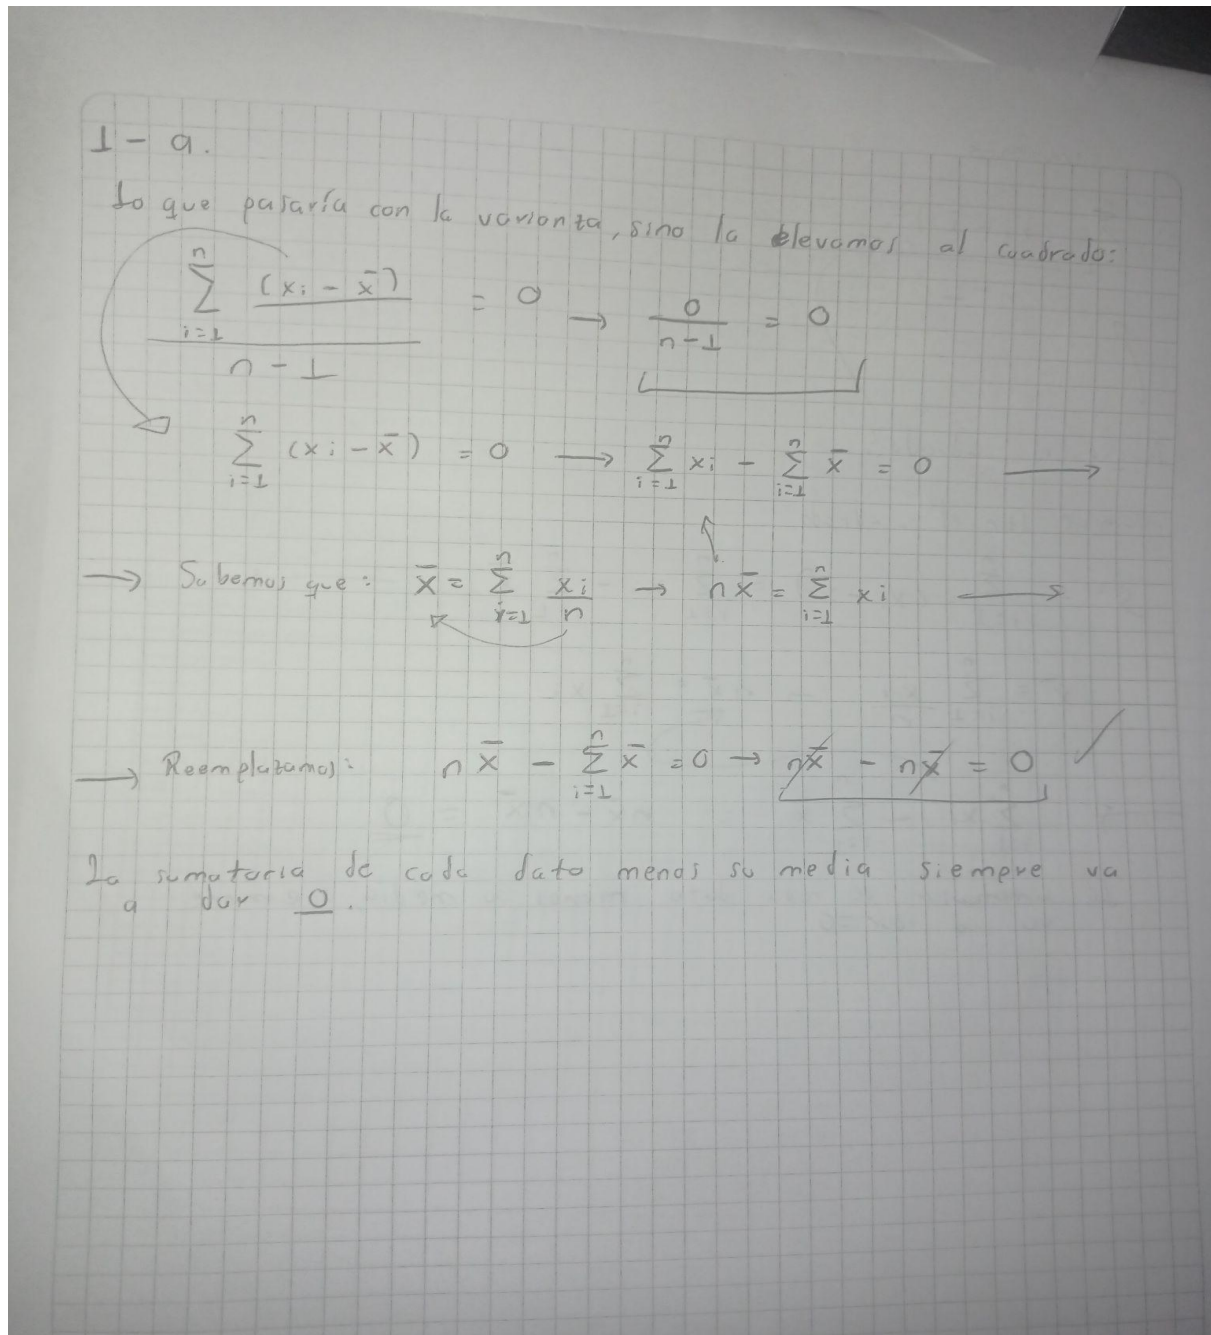 1 - a.
Lo que pasaría con la varianza, sino la elevamos al cuadrado:
\frac{\sum_{i=1}^{n} (xi - x̄)}{n - 1} = 0 → \frac{0}{n-1} = 0
\sum_{i=1}^{n} (xi - x̄) = 0 → \sum_{i=1}^{n} xi - \sum_{i=1}^{n} x̄ = 0 →
→ Sabemos que: x̄ = \sum_{i=1}^{n} \frac{xi}{n} → nx̄ = \sum_{i=1}^{n} xi →
→ Reemplazamos: nx̄ - \sum_{i=1}^{n} x̄ = 0 → nx̄ - nx̄ = 0
La sumatoria de cada dato menos su media siempre va
a dar 0.